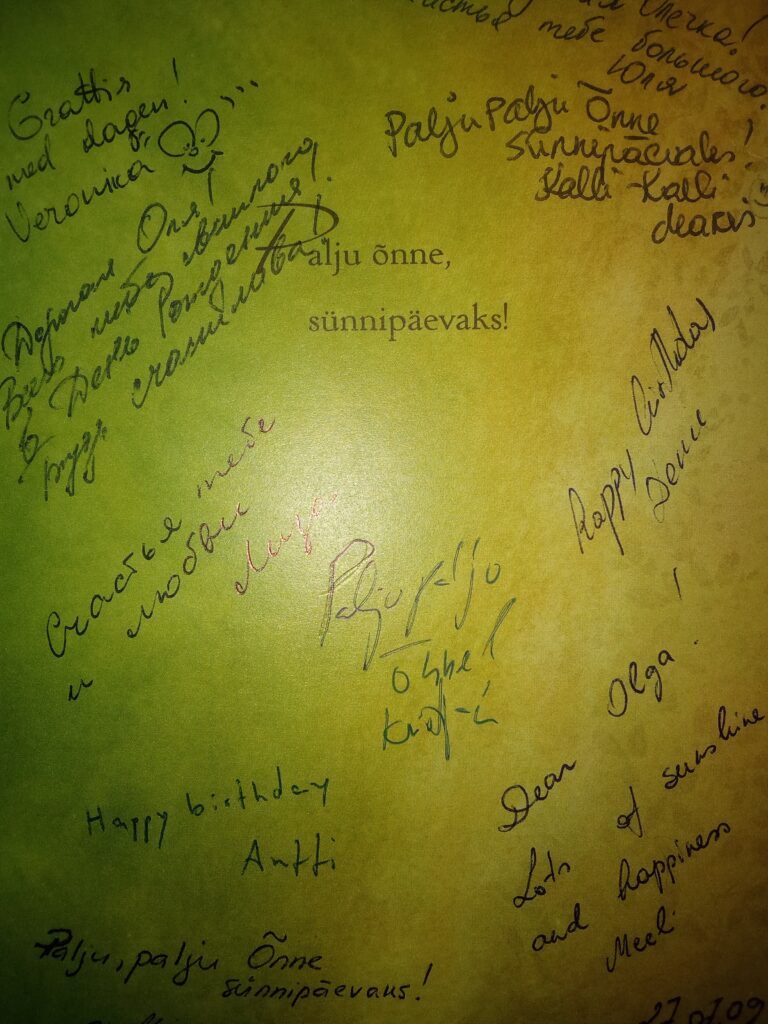 Олечка!
счастья тебе большого.
Юля
Grattis
med dagen!
Veronika
Palju palju Õnne
Sünnipäevaks!
Kalli-Kalli
Дорогая Оля!
Всего тебе
в День Рождения!
Будь счастлива!
Palju õnne,
sünnipäevaks!
Happy birthday
Счастья тебе
и любви
Лида
Palju palju
õnne!
Dear Olga!
Lots of sunshine
and happiness
Meeli
Happy birthday
Antti
Palju, palju Õnne
sünnipäevaks!